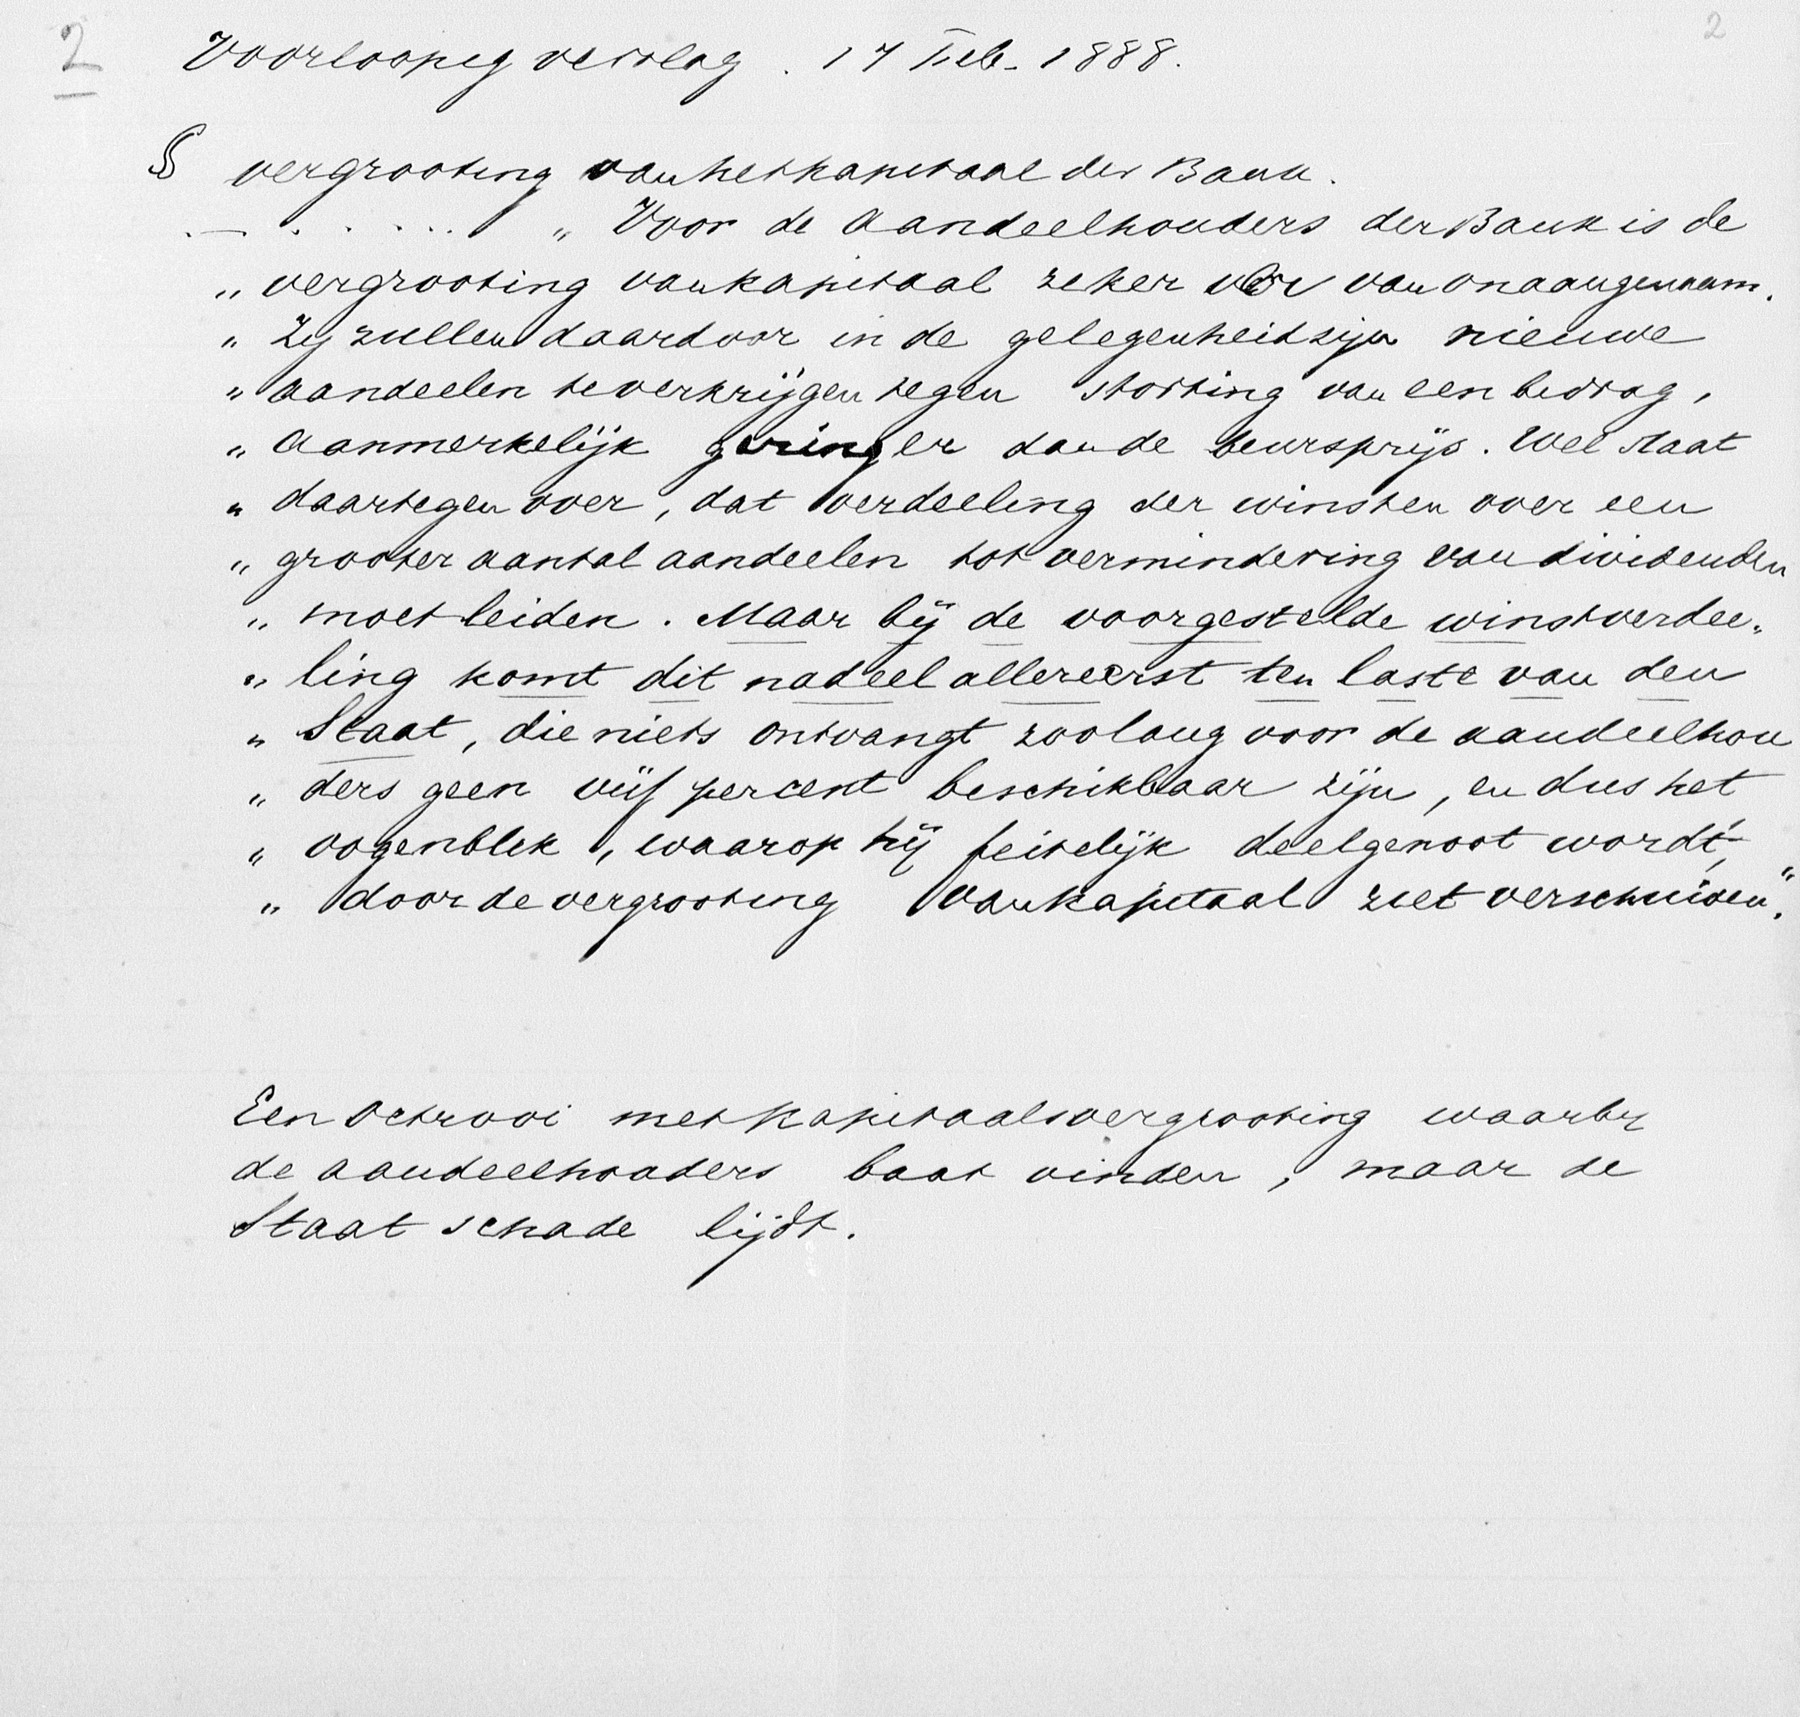 2
2
Voorloopig verslag. 17 Feb. 1888.
§ vergrooting van het kapitaal der Bank.
. — . . . . . . „ Voor de aandeelhouders der Bank is de
„ vergrooting van kapitaal zeker ver van onaangenaam.
„ Zij zullen daardoor in de gelegenheid zijn nieuwe
„ aandeelen te verkrijgen tegen storting van een bedrag,
„ aanmerkelijk geringer dan de beursprijs. Wel staat
„ daartegenover, dat verdeeling der winsten over een
„ grooter aantal aandeelen tot vermindering van dividenden
„ moet leiden. Maar bij de voorgestelde winstverdee„
„ ling komt dit nadeel allereerst ten laste van den
„ Staat, die niets ontvangt zoolang voor de aandeelhou
„ ders geen vijf percent beschikbaar zijn, en dus het
„ oogenblik, waarop hij feitelijk deelgenoot wordt,
„ door de vergrooting van kapitaal ziet verschuiven."
Een octrooi met kapitaalsvergrooting waarbij
de aandeelhouders baat vinden, maar de
Staat schade lijdt.